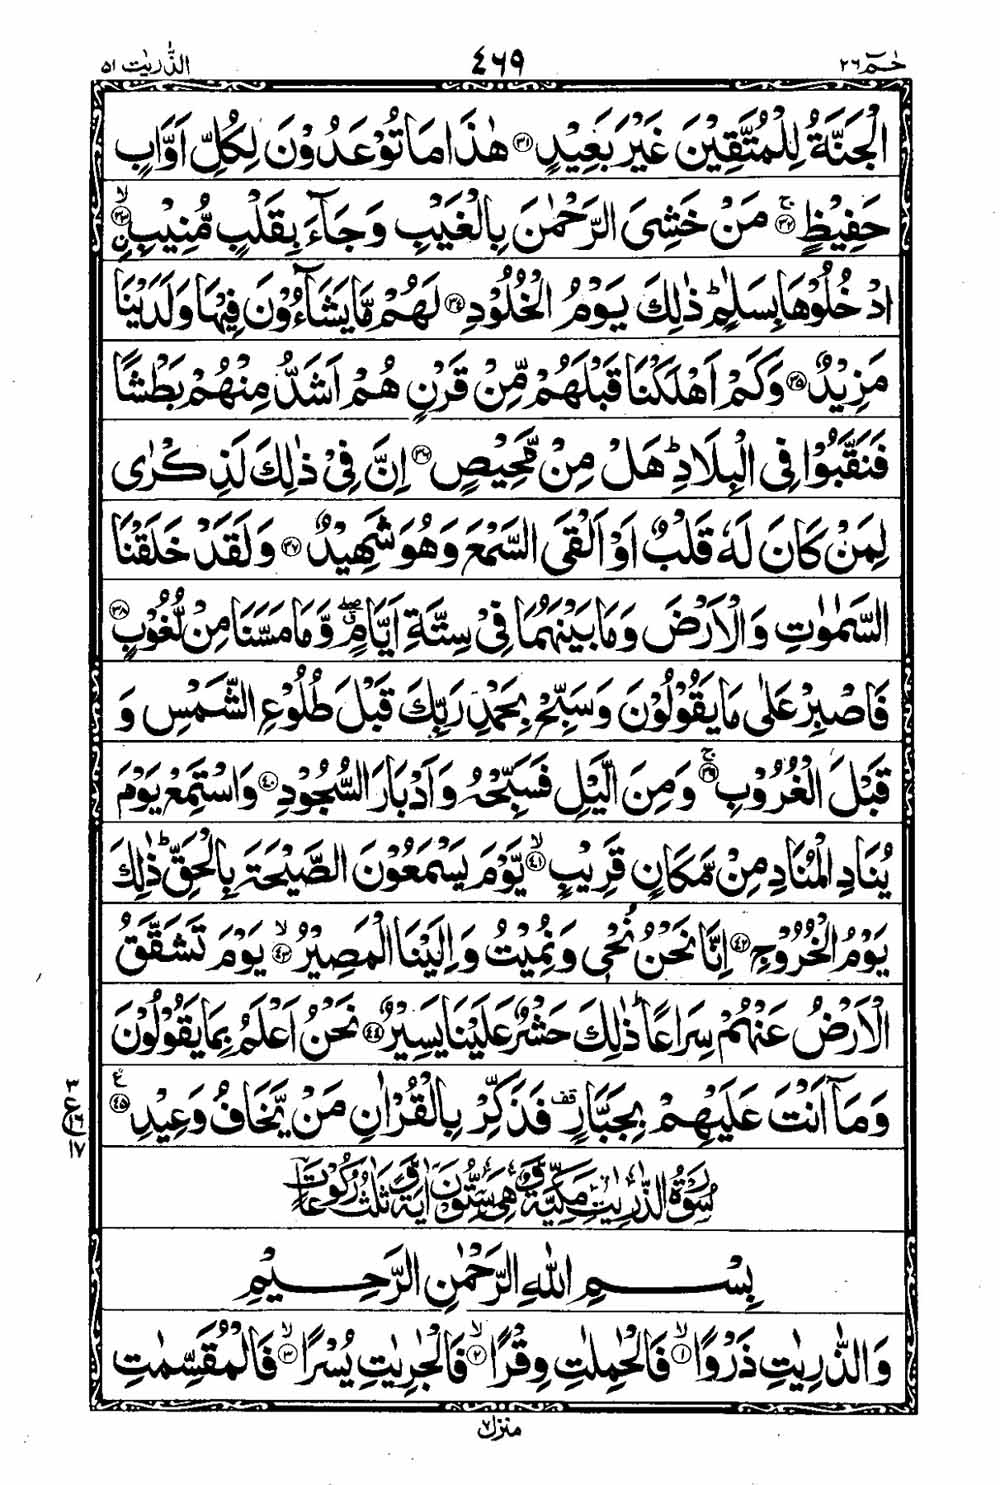 حٰمٓ ٢٦ ٤٦٩ الذّٰريٰت ٥١
الْجَنَّةُ لِلْمُتَّقِيْنَ غَيْرَ بَعِيْدٍ ۝٣١ هٰذَا مَا تُوْعَدُوْنَ لِكُلِّ اَوَّابٍ
حَفِيْظٍ ۝٣٢ۚ مَنْ خَشِيَ الرَّحْمٰنَ بِالْغَيْبِ وَجَآءَ بِقَلْبٍ مُّنِيْبِ ۝٣٣ۙ
ادْخُلُوْهَا بِسَلٰمٍ ؕ ذٰلِكَ يَوْمُ الْخُلُوْدِ ۝٣٤ لَهُمْ مَّا يَشَآءُوْنَ فِيْهَا وَلَدَيْنَا
مَزِيْدٌ ۝٣٥ وَكَمْ اَهْلَكْنَا قَبْلَهُمْ مِّنْ قَرْنٍ هُمْ اَشَدُّ مِنْهُمْ بَطْشًا
فَنَقَّبُوْا فِي الْبِلَادِ ؕ هَلْ مِنْ مَّحِيْصٍ ۝٣٦ اِنَّ فِيْ ذٰلِكَ لَذِكْرٰى
لِمَنْ كَانَ لَهٗ قَلْبٌ اَوْ اَلْقَى السَّمْعَ وَهُوَ شَهِيْدٌ ۝٣٧ وَلَقَدْ خَلَقْنَا
السَّمٰوٰتِ وَالْاَرْضَ وَمَا بَيْنَهُمَا فِيْ سِتَّةِ اَيَّامٍ ۖ وَّمَا مَسَّنَا مِنْ لُّغُوْبٍ ۝٣٨
فَاصْبِرْ عَلٰى مَا يَقُوْلُوْنَ وَسَبِّحْ بِحَمْدِ رَبِّكَ قَبْلَ طُلُوْعِ الشَّمْسِ وَ
قَبْلَ الْغُرُوْبِ ۝٣٩ۚ وَمِنَ الَّيْلِ فَسَبِّحْهُ وَاَدْبَارَ السُّجُوْدِ ۝٤٠ وَاسْتَمِعْ يَوْمَ
يُنَادِ الْمُنَادِ مِنْ مَّكَانٍ قَرِيْبٍ ۝٤١ۙ يَّوْمَ يَسْمَعُوْنَ الصَّيْحَةَ بِالْحَقِّ ؕ ذٰلِكَ
يَوْمُ الْخُرُوْجِ ۝٤٢ اِنَّا نَحْنُ نُحْيٖ وَنُمِيْتُ وَاِلَيْنَا الْمَصِيْرُ ۝٤٣ۙ يَوْمَ تَشَقَّقُ
الْاَرْضُ عَنْهُمْ سِرَاعًا ؕ ذٰلِكَ حَشْرٌ عَلَيْنَا يَسِيْرٌ ۝٤٤ نَحْنُ اَعْلَمُ بِمَا يَقُوْلُوْنَ
وَمَآ اَنْتَ عَلَيْهِمْ بِجَبَّارٍ قف فَذَكِّرْ بِالْقُرْاٰنِ مَنْ يَّخَافُ وَعِيْدِ ۝٤٥ ع
٣
ع ١٦
١٧
سُوْرَةُ الذّٰرِيٰتِ مَكِّيَّةٌ وَّهِيَ سِتُّوْنَ اٰيَةً وَّثَلٰثُ رُكُوْعَاتٍ
بِسْمِ اللّٰهِ الرَّحْمٰنِ الرَّحِيْمِ
وَالذّٰرِيٰتِ ذَرْوًا ۝١ۙ فَالْحٰمِلٰتِ وِقْرًا ۝٢ۙ فَالْجٰرِيٰتِ يُسْرًا ۝٣ۙ فَالْمُقَسِّمٰتِ
منزل ٧